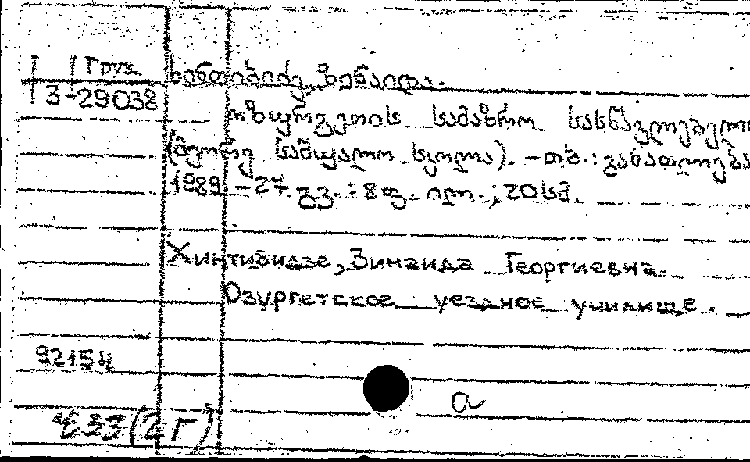 Груз.
3-29038
ხინთიბიძე, ზენაიდა.
ოზურგეთის სამაზრო სასწავლებელი
(მეორე საშუალო სკოლა). – თბ.: განათლება
1989. – 27 გვ. : 8 ფ. ილ. ; 20 სმ.
Хинтибидзе, Зинаида Георгиевна.
Озургетское уездное училище.
92154
433(2Г)
а